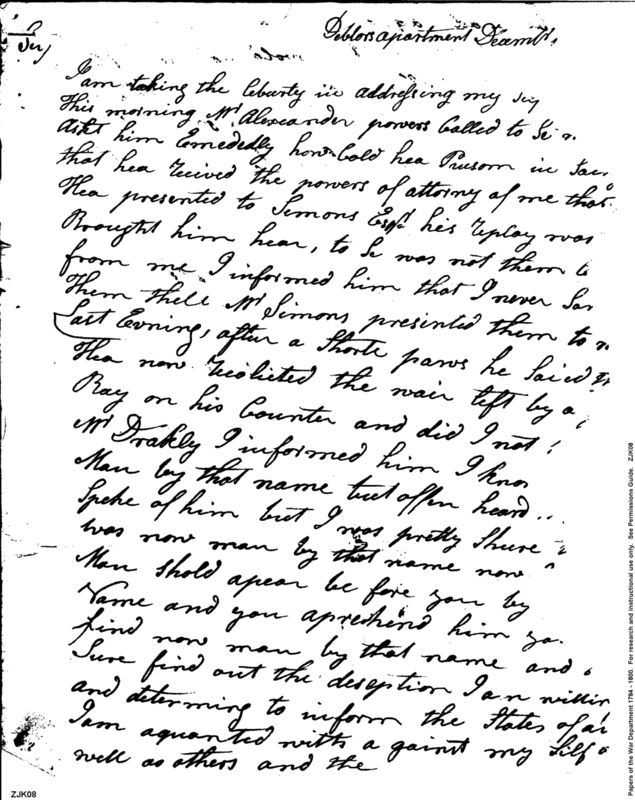 Debtors apartment Decembr,
Sir,
I am taking the leberty in addressing my
This morning Mr Alexander powers Called to Se
Askt him Emededly how Cold hea Prusom in
that hea Recived the powers of attorny of me that
Hea presented to Simons Esqr his Replay was
Brought him hear, to Se was not them
from me I informed him that I never Saw
Them till Mr Simons presented them to
Last Evning, after a Shorte paws he Saied
Hea now Recolicted the wair left by a
Ray on his Counter and did I not
Mr Drakly I informed him I know
Man by that name but offen heard
Speke of him but I was pretty Shure
was now man by that name now
Man Shold apear be fore you by
Name and you aprehend him
find now man by that name and
Sure find out the deseption I an willin
and determing to inform the States of
I am aquanted with a gainst my Silf
well as others and the
ZJK08
Papers of the War Department 1784 - 1800. For research and instructional use only. See Permissions Guide. ZJK08